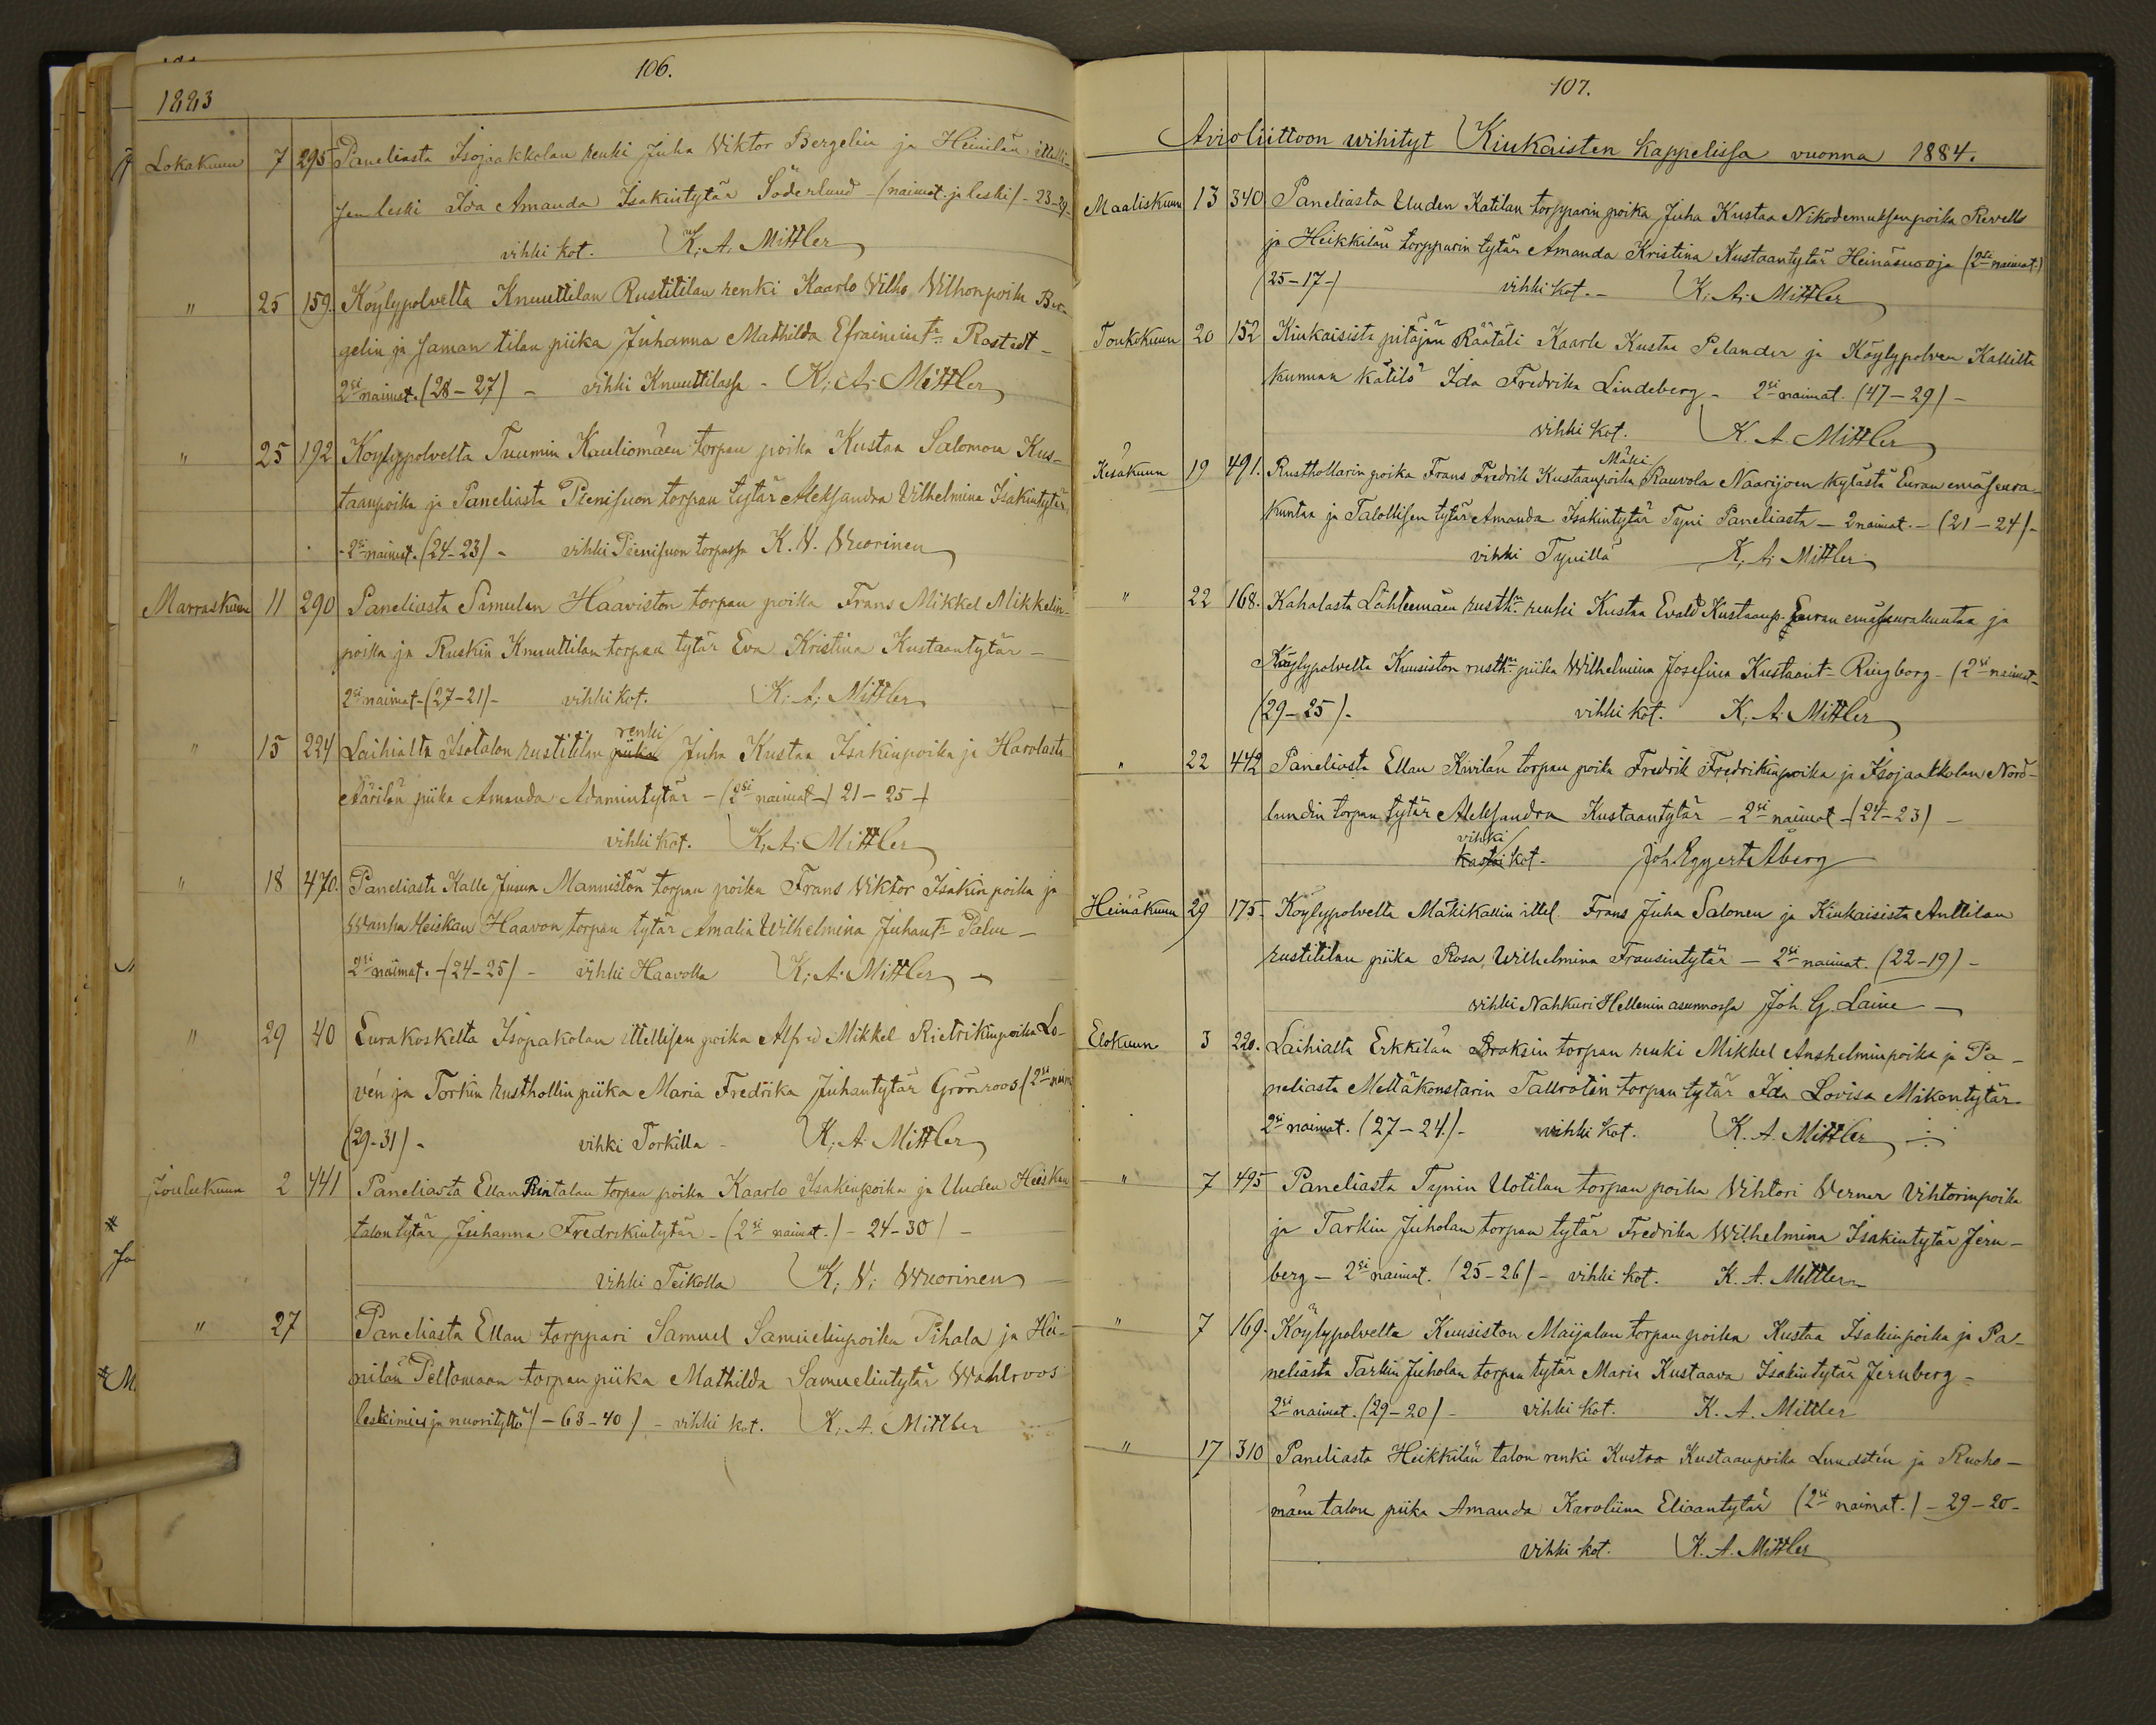 106.
1883
Lokakuun 7 295 Paneliasta Isojaakkolan renki Juha Viktor Bergelin ja Heinilän ittelli-
sen leski Ida Amanda Isakintytär Söderlund - (naimat. ja leski) - 23-29-
vihki kot. K. A. Mittler
" 25 159. Köylypolvelta Knuuttilan Rustitilan renki Kaarlo Vilho Vilhonpoika Ber-
gelin ja saman tilan piika Juhanna Mathilda Efraimint. Rostedt -
2si naimat. (28-27) - vihki Knuuttilassa - K. A. Mittler
" 25 192 Köylypolvelta Tuumin Kauliomäen torpan poika Kustaa Salomon Kus-
taanpoika ja Paneliasta Pienisuon torpan tytär Aleksandra Vilhelmina Isakintytär
- 2si naimat. (24-23) - vihki Pienisuon torpassa K. V. Wuorinen
Marraskuun 11 290 Paneliasta Samulan Haaviston torpan poika Frans Mikkel Mikkelin-
poika ja Ruskin Knuuttilan torpan tytär Eva Kristina Kustaantytär -
2si naimat - (27-21) - vihki kot. K. A. Mittler
renki
" 15 224 Laihialta Isotalon rustitilan piika Juha Kustaa Isakinpoika ja Harolasta
Äärilän piika Amanda Adamintytär - (2si naimat -) 21-25 -)
vihki kot. K. A. Mittler
" 18 470. Paneliasta Kalle Juusn Manniston torpan poika Frans Viktor Isakinpoika ja
Wanha Heiskan Haavon torpan tytär Amalia Wilhelmina Juhant. Palm -
2si naimat. - (24-25) - vihki Haavolla K. A. Mittler -
" 29 40 Eurakoskelta Isopakolan ittellisen poika Alfred Mikkel Rietrikinpoika Lo-
vén ja Torkin rusthollin piika Maria Fredrika Juhantytär Grönroos (2si naim
(29-31) - vihki Torkilla - K. A. Mittler
Joulukuun 2 441 Paneliasta Ellan Rintalan torpan poika Kaarlo Isakinpoika ja Uuden Heiskan
talon tytär Juhanna Fredrikintytär - (2si naimat.) - 24-30) -
vihki Teikolla K. V. Wuorinen
" 27 Paneliasta Ellan torppari Samuel Samuelinpoika Pihala ja Hei-
nilän Peltomaan torpan piika Mathilda Samuelintytär Wahlroos
leskimies ja nuorityttö) - 63-40) - vihki kot. K. A. Mittler
107.
Avioliittoon wihityt Kiukaisten kappelissa vuonna 1884.
Maaliskuun 13 340. Paneliasta Uuden Katilan torpparin poika Juha Kustaa Nikodemuksenpoika Revell
ja Heikkilän torpparin tytär Amanda Kristina Kustaantytär Heinäsuooja (2si naimat.)
(25-17-) vihki kot. - K. A. Mittler
Toukokuun 20 152 Kiukaisista pitäjän Räätäli Kaarle Kustaa Pelander ja Köylypolven Kallilta
kunnan kätilö Ida Fredrika Lindeberg - 2si naimat. (47-29) -
vihki kot. K. A. Mittler
Mäki
Kesäkuun 19 491. Rusthollarin poika Frans Fredrik Kustaanpoika Rauvola Naarijoen kylästä Euran emäseura-
kuntaa ja Talollisen tytär Amanda Isakintytär Tyni Paneliasta - 2 naimat. - (21-24) -
vihki Tynillä K. A. Mittler
" 22 168. Kahalasta Lähteenmäen rusth. renki Kustaa Evald Kustaanp. Euran emäseurakuntaa ja
Köylypolvelta Kuusiston rusth. piika Wilhelmina Josefina Kustaant - Ringborg - (2si naimat -
(29-25) - vihki kot. K. A. Mittler
" 22 442 Paneliasta Ellan Kivilän torpan poika Fredrik Fredrikinpoika ja Isojaakkolan Nord-
lundin torpan tytär Aleksandra Kustaantytär - 2si naimat - (24-23) -
vihki
kastoi kot - Joh. Eggert Åberg
Heinäkuun 29 175 - Köylypolvelta Mäkikallin ittel. Frans Juha Salonen ja Kiukaisista Anttilan
rustitilan piika Rosa Wilhelmina Fransintytär - 2si naimat. (22-19) -
vihki Nahkuri Hellenin asunnossa Joh. G. Laine -
Elokuun 3 220. Laihialta Erkkilän Braksin torpan renki Mikkel Anshelminpoika ja Pa-
neliasta Mettäkonstarin Tallrotin torpan tytär Ida Lovisa Mikontytär -
2si naimat. (27-24) - vihki kot. K. A. Mittler
" 7 495 Paneliasta Tynin Uotilan torpan poika Vihtori Verner Vihtorinpoika
ja Tarkin Juholan torpan tytär Fredrika Wilhelmina Isakintytär Jern-
berg - 2si naimat. (25-26) - vihki kot. K. A. Mittler
" 7 169. Köylypolvelta Kuusiston Maijalan torpan poika Kustaa Isakinpoika ja Pa-
neliasta Tarkin Juholan torpan tytär Maria Kustaava Isakintytär Jernberg -
2si naimat. (29-20) - vihki kot. K. A. Mittler
" 17 310 Paneliasta Heikkilän talon renki Kustaa Kustaanpoika Lundstén ja Ruoho-
mäen talon piika Amanda Karoliina Eliaantytär (2si naimat.) - 29-20 -
vihki kot. K. A. Mittler